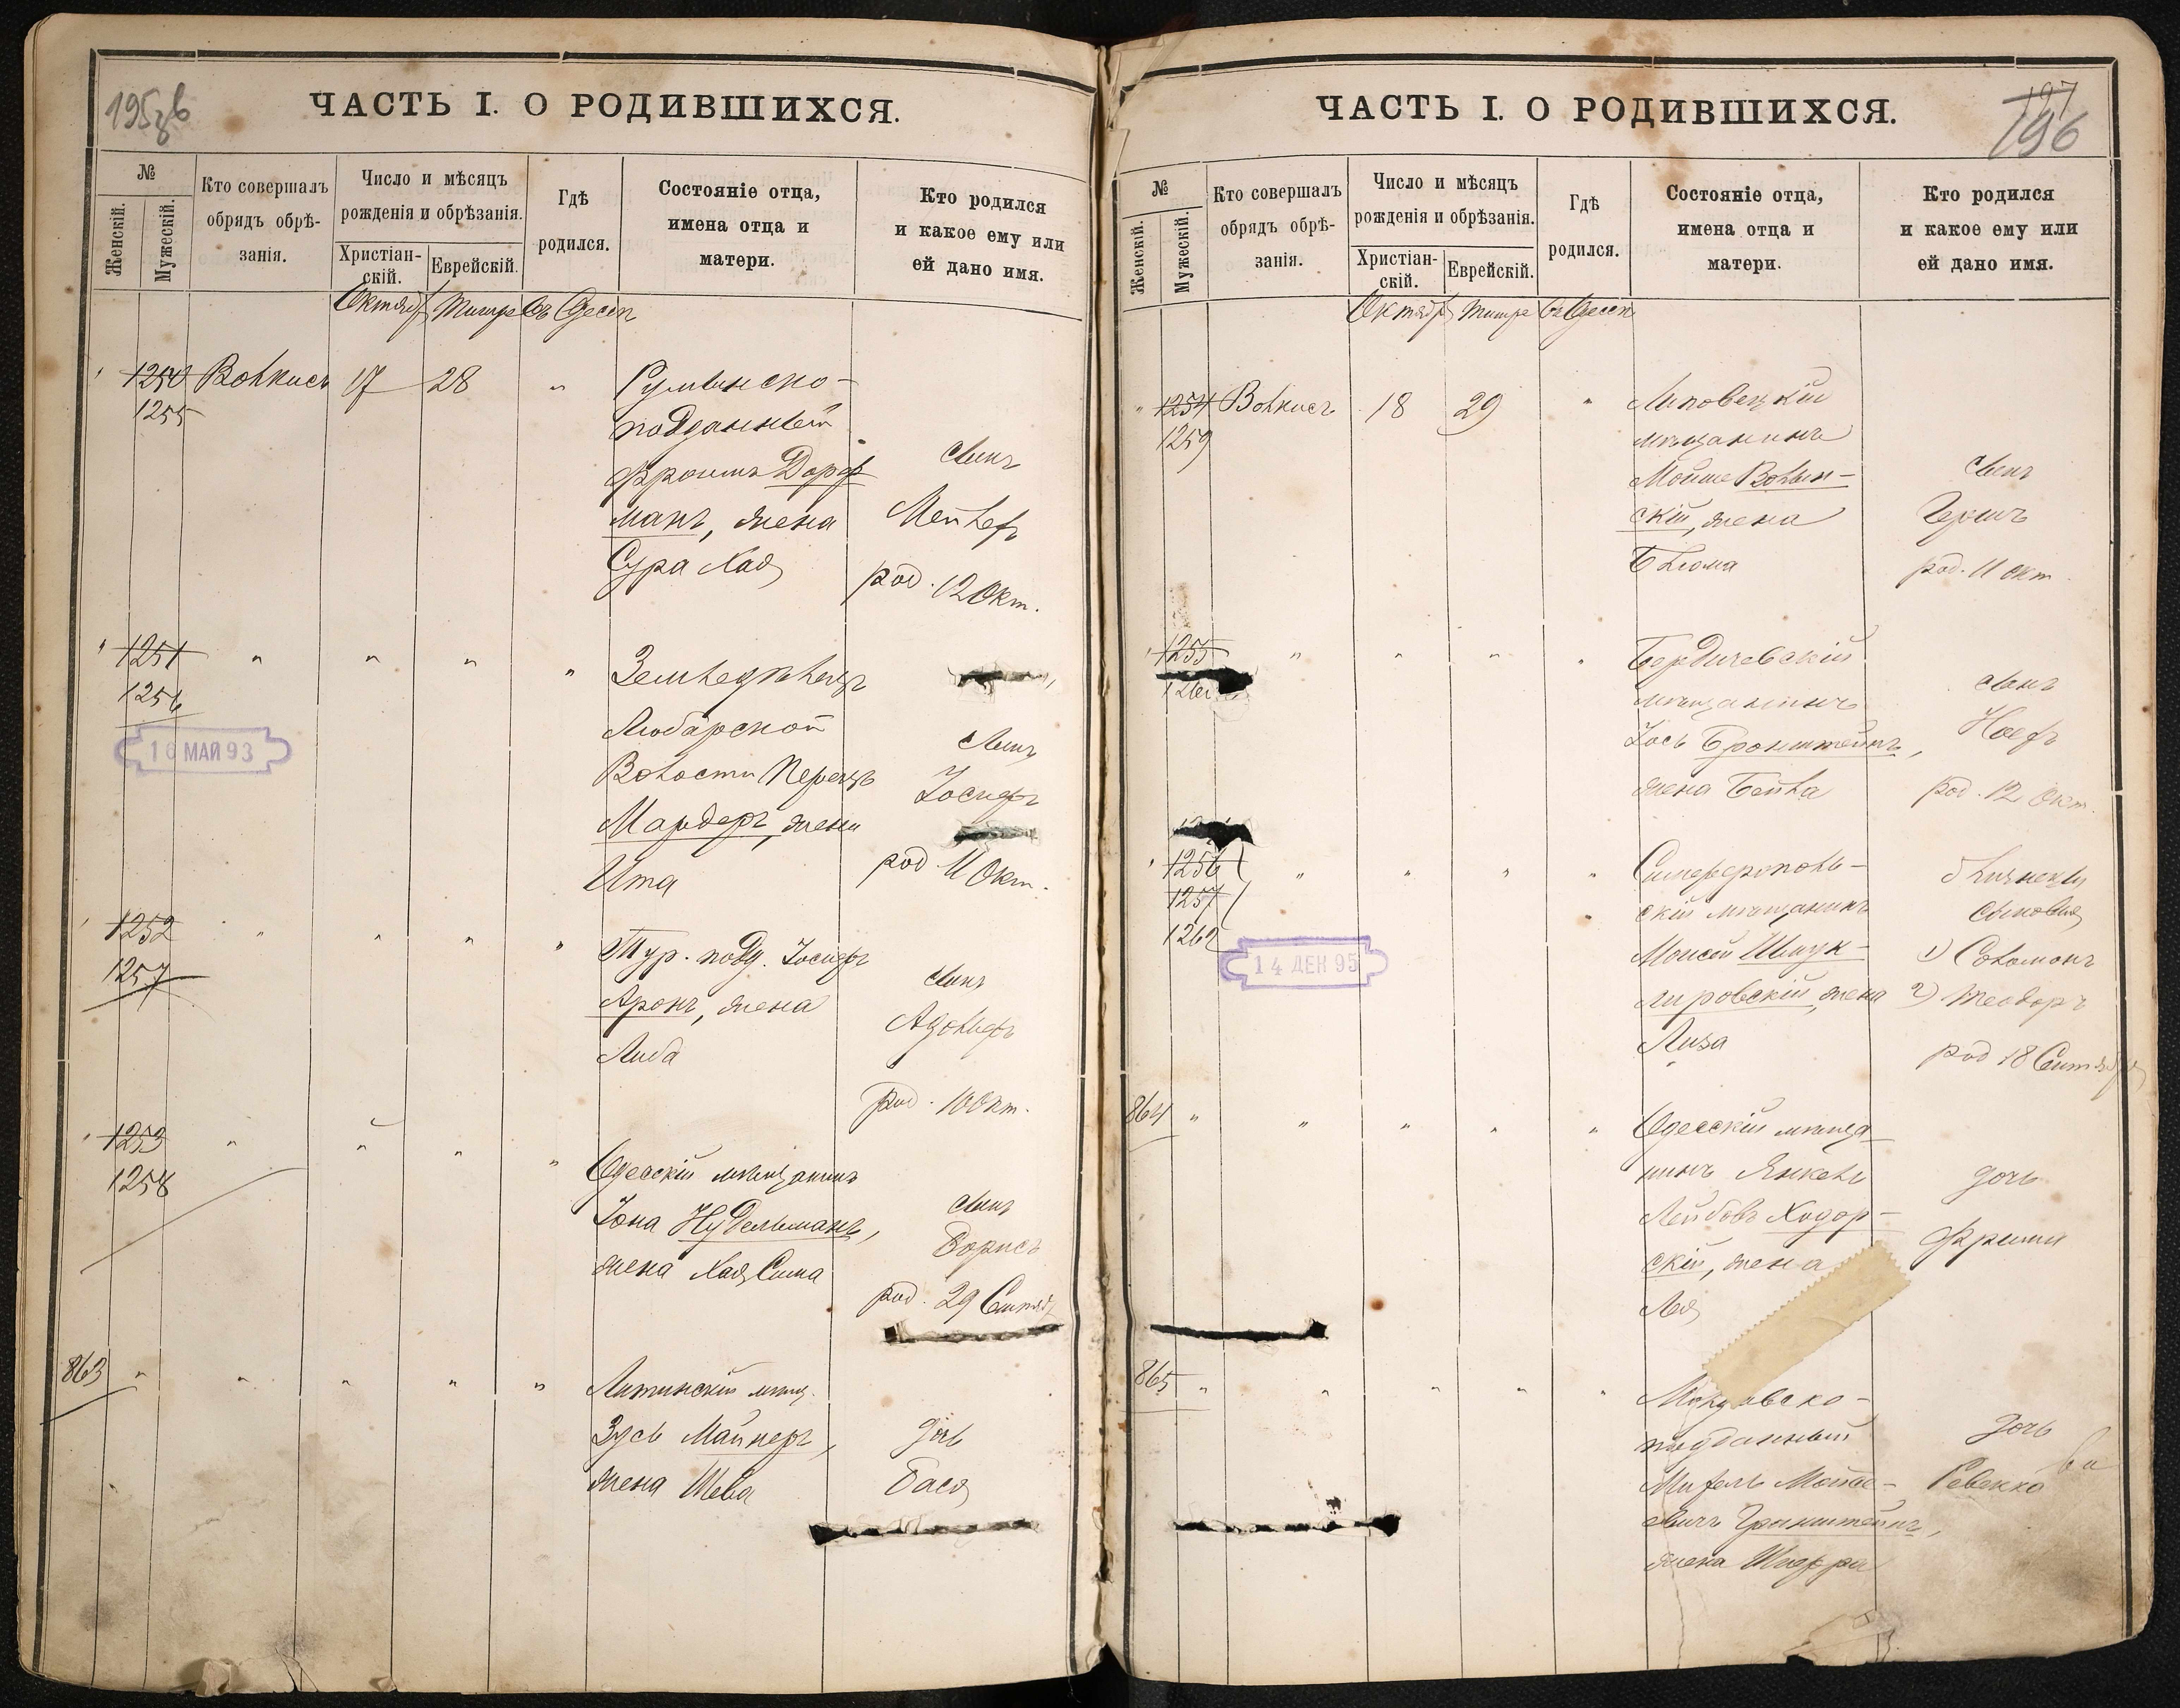 195 зв
ЧАСТЬ I. О РОДИВШИХСЯ.
№
Женскій.
Мужескій.
Кто совершалъ
обрядъ обрѣ-
занія.
Число и мѣсяцъ
рожденія и обрѣзанія.
Христіан-
скій.
Еврейскій.
Гдѣ
родился.
Состояніе отца,
имена отца и
матери.
Кто родился
и какое ему или
ей дано имя.
Октябр Тишре Въ Одессѣ
1250 Волкисъ 17 28 " Румынско-
1255
подданный
Фроимъ Дорф
сынъ
манъ, жена
Мейлехъ
Сура Хая
род. 12 Окт.
1251 " " " " Земледѣлецъ
1256
Любарской
16 МАЙ 93
сынъ
Волости Перецъ
Іосифъ
Мардеръ, жена
Ита
род. 11 Окт.
1252 " " " " Тур. подд. Іосифъ
1257
сынъ
Аронъ, жена
Адольфъ
Либа
род. 10 Окт.
1253 " " " " Одесскій мѣщанинъ
1258
сынъ
Іона Нудельманъ,
Борисъ
жена Хая Сима
род. 29 Сентяб
863 " " " " " Литинскій мѣщ.
Зусь Майнеръ,
дочь
жена Шева
Бася
197
196
ЧАСТЬ I. О РОДИВШИХСЯ.
№
Женскій.
Мужескій.
Кто совершалъ
обрядъ обрѣ-
занія.
Число и мѣсяцъ
рожденія и обрѣзанія.
Христіан-
скій.
Еврейскій.
Гдѣ
родился.
Состояніе отца,
имена отца и
матери.
Кто родился
и какое ему или
ей дано имя.
Октябр Тишре Въ Одессѣ
" 1254 Волкисъ 18 29 " Липовецкій
1259
мѣщанинъ
Мойше Волын-
сынъ
скій, жена
Гершъ
Блюма
род. 11 Окт.
1255 " " " " Бердичевскій
сынъ
мѣщанинъ
Іось Бронштейнъ,
жена Бейла
род. 12 Окт.
1256 " " " " Симферополь-
близнецы
1257
скій мѣщанинъ
сыновья
1262
14 ДЕК 95
Моисей Шмук-
1) Соломонъ
лировскій, жена
2) Теодоръ
Лиза
род 18 Сентября
864 " " " " " Одесскій мѣща-
нинъ Янкель
дочь
Лейбовъ Ходор-
скій, жена
Лея
865 " " " " "
подданный
дочь
Ревекка